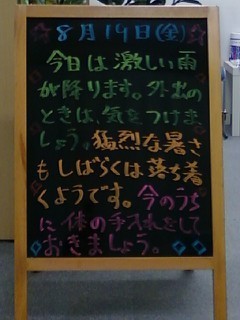 8月19日(金)
今日は激しい雨
が降ります。外出の
ときは、気をつけま
しょう。猛烈な暑さ
もしばらくは落ち着
くようです。今のうち
に体の手入れをして
おきましょう。